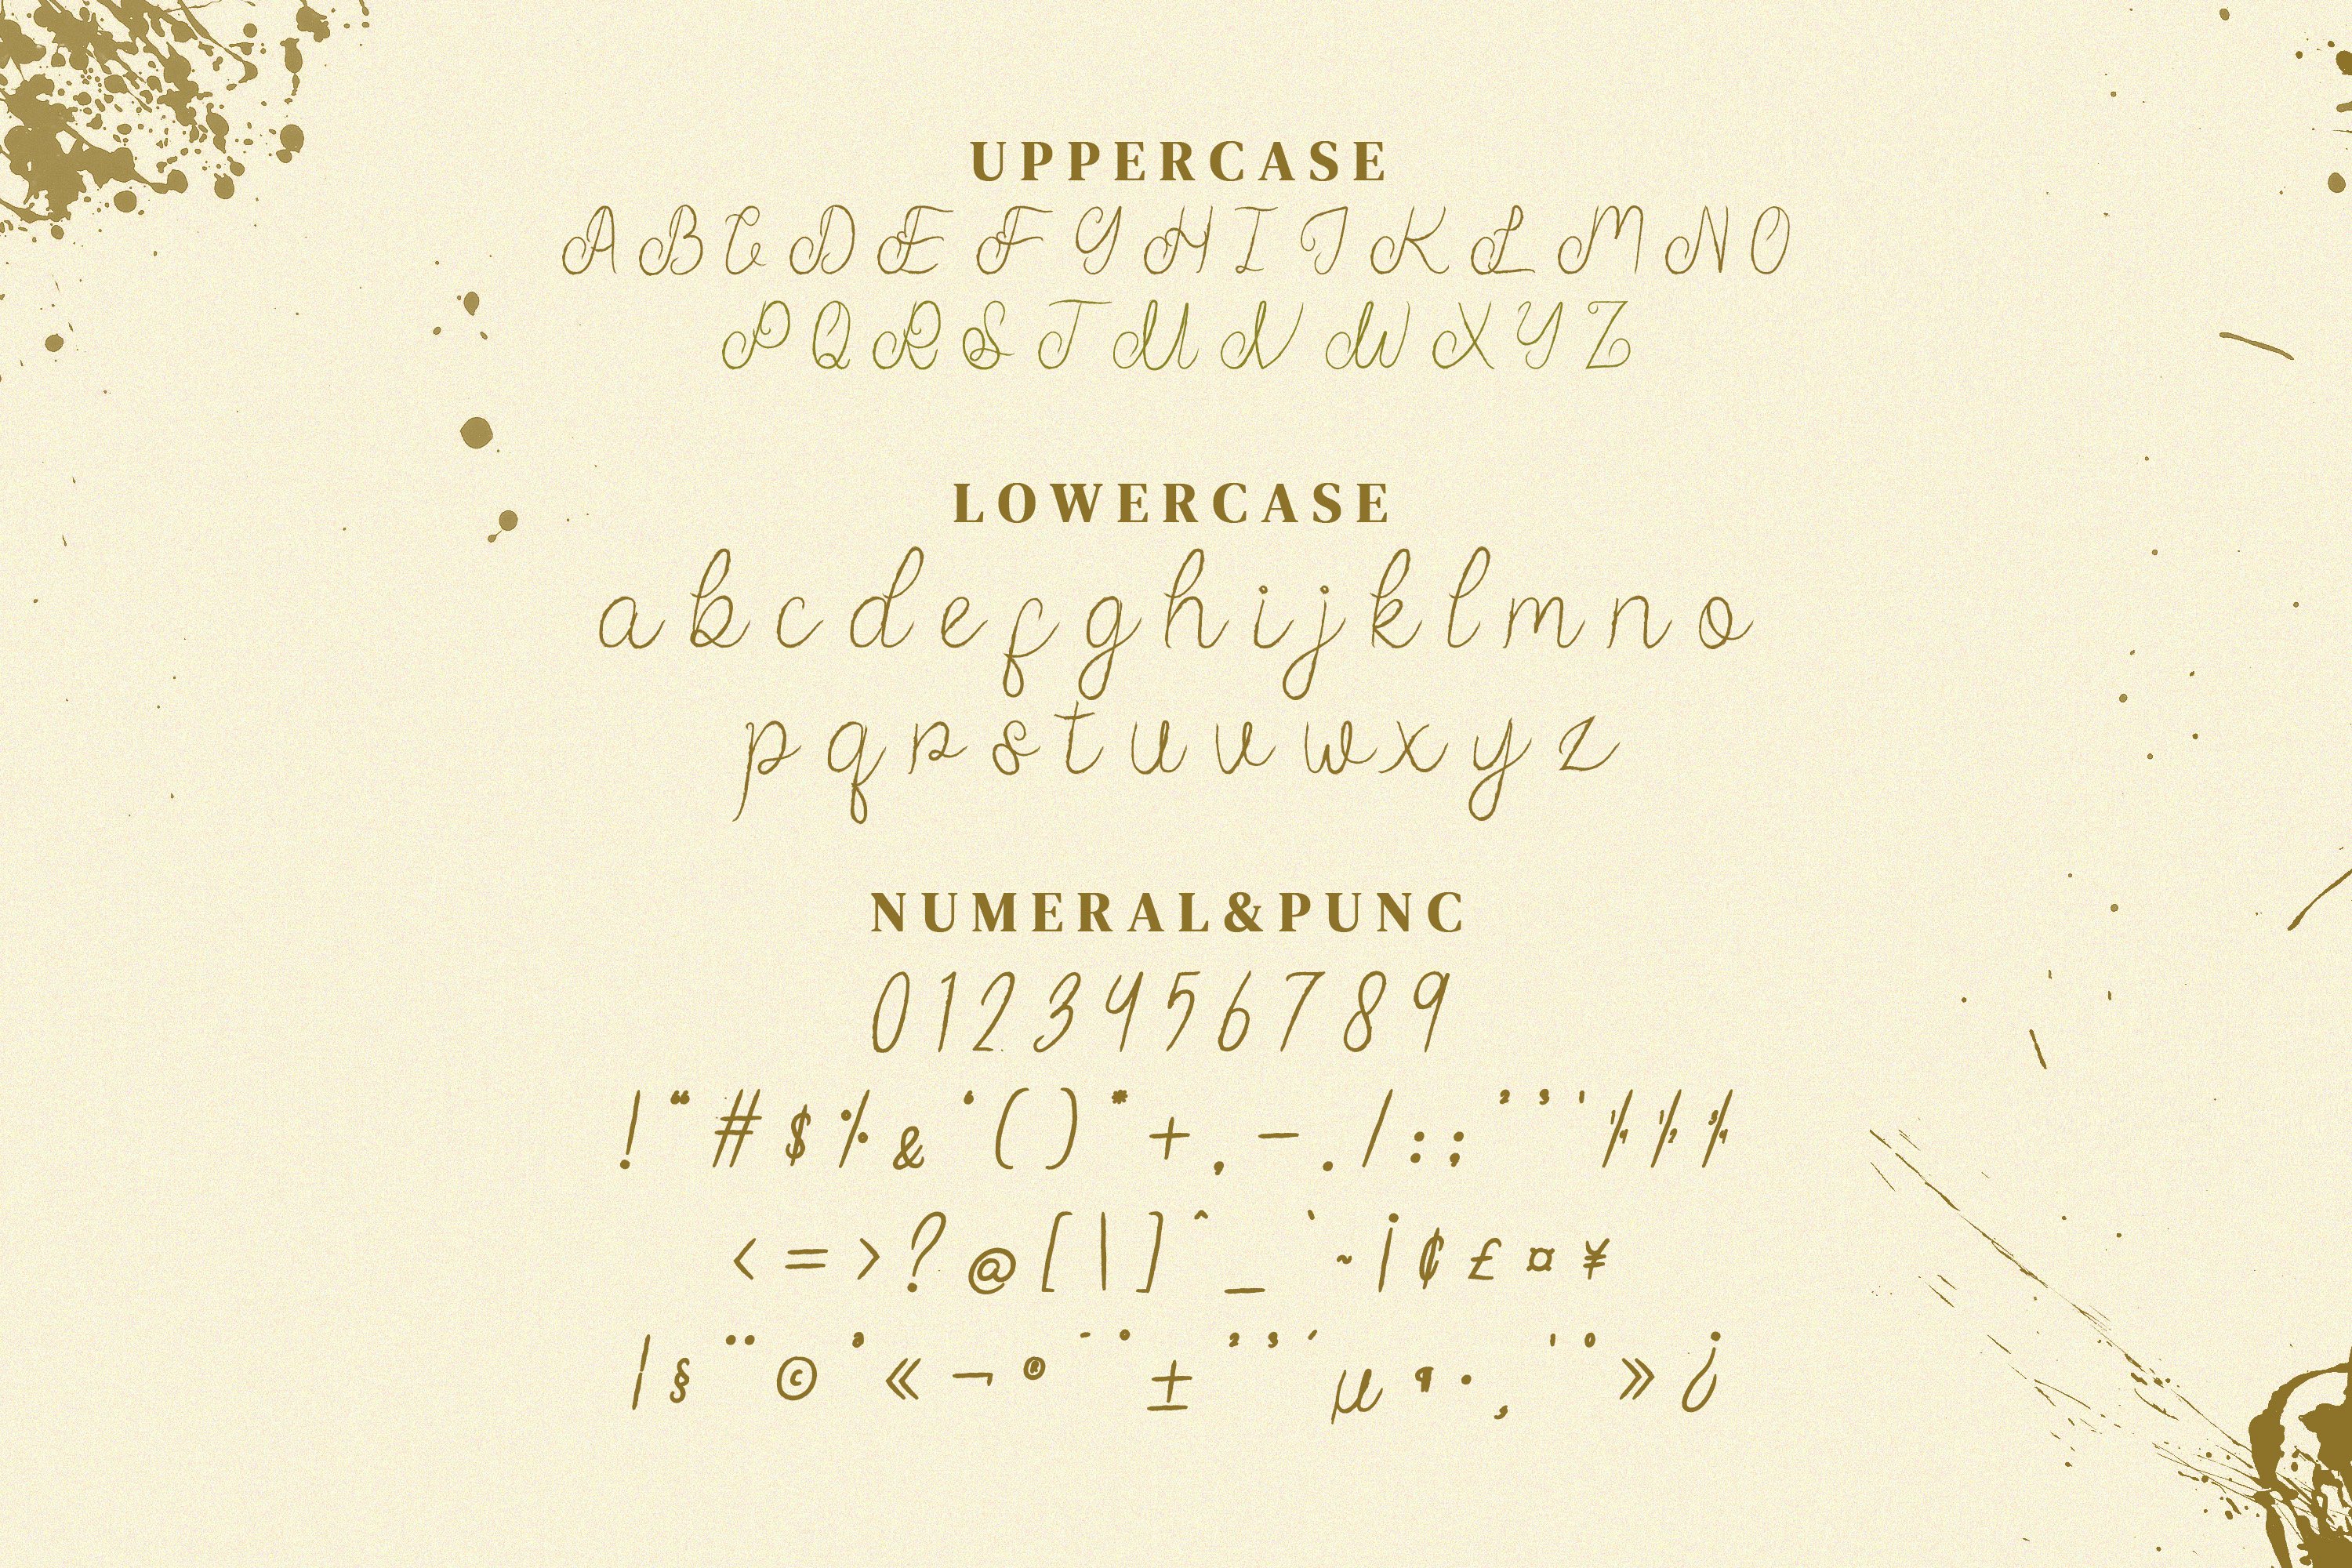 UPPERCASE
A B C D E F G H I J K L M N O
P Q R S T U V W X Y Z
LOWERCASE
a b c d e f g h i j k l m n o
p q r s t u v w x y z
NUMERAL&PUNC
0 1 2 3 4 5 6 7 8 9
! " # $ % & ' ( ) * + , - . / : ; ² ³ ¹ ¼ ½ ¾
< = > ? @ [ | ] ^ _ ` ~ ¡ ¢ £ ¤ ¥
¦ § ¨ © ª « ¬ ® ¯ ° ± ² ³ ´ µ ¶ · ¸ ¹ º » ¿